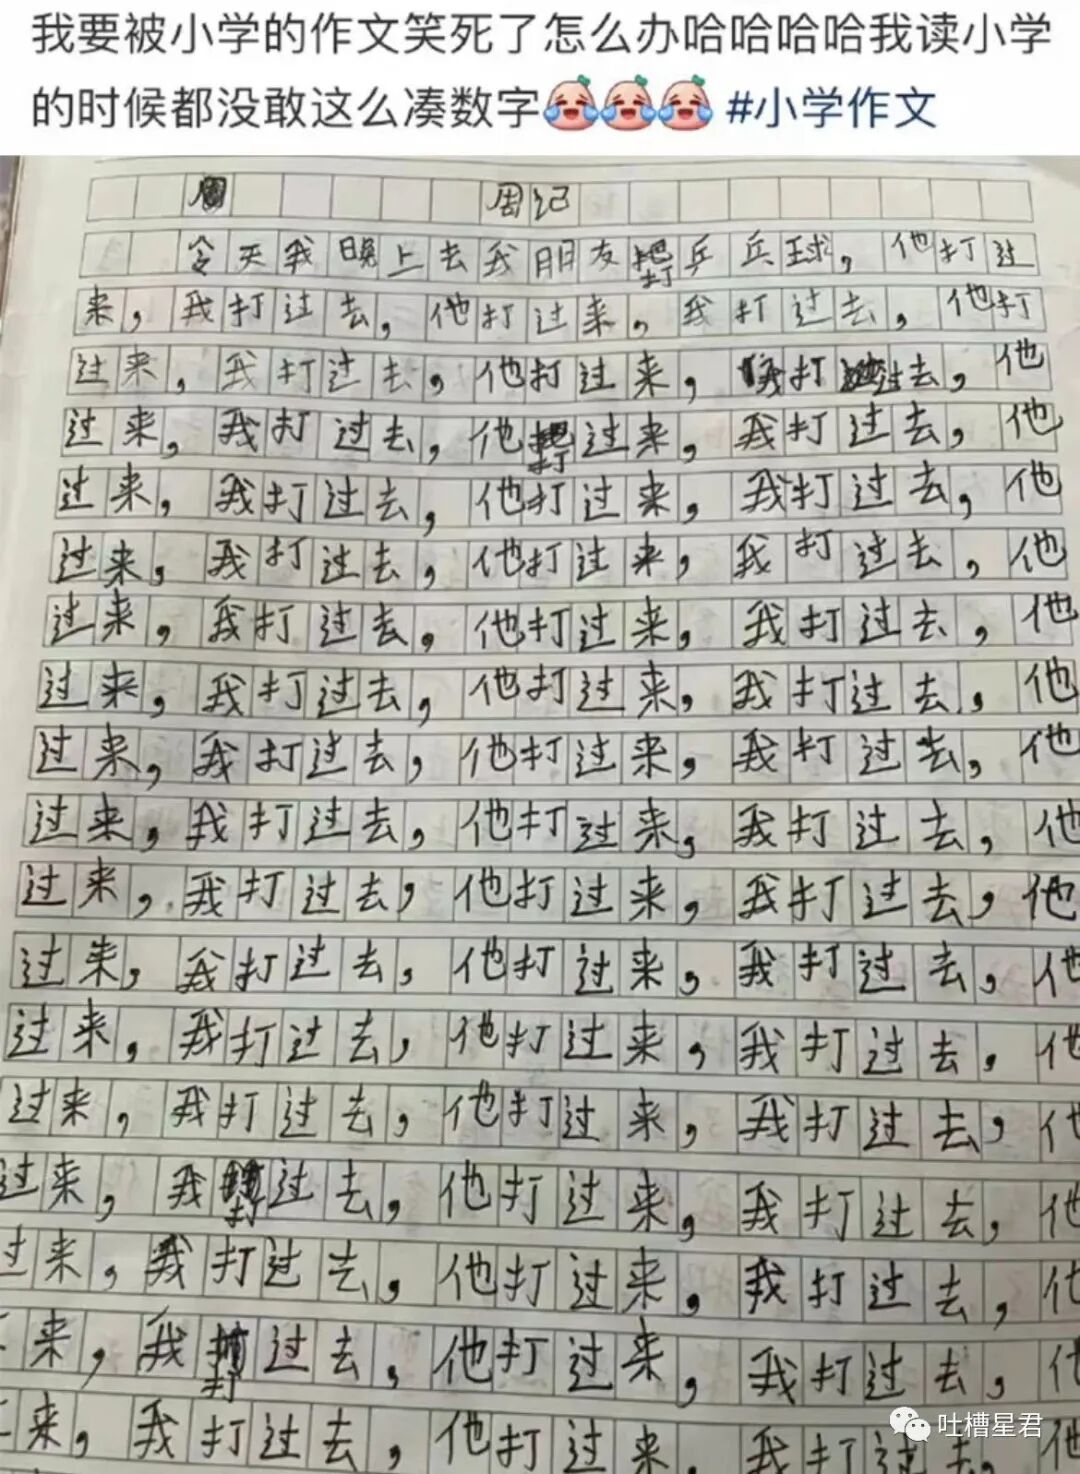 我要被小学的作文笑死了怎么办哈哈哈哈我读小学
的时候都没敢这么凑数字 #小学作文
周记
今天我晚上去我朋友打乒乓球，他打过
来，我打过去，他打过来，我打过去，他打
过来，我打过去，他打过来，我打过去，他
过来，我打过去，他打过来，我打过去，他
过来，我打过去，他打过来，我打过去，他
过来，我打过去，他打过来，我打过去，他
过来，我打过去，他打过来，我打过去，他
过来，我打过去，他打过来，我打过去，他
过来，我打过去，他打过来，我打过去，他
过来，我打过去，他打过来，我打过去，他
过来，我打过去，他打过来，我打过去，他
过来，我打过去，他打过来，我打过去，他
过来，我打过去，他打过来，我打过去，他
过来，我打过去，他打过来，我打过去，他
过来，我打过去，他打过来，我打过去，他
过来，我打过去，他打过来，我打过去，他
来，我打过去，他打过来，我打过去，他
来，我打过去，他打过来，我打过去，他
吐槽星君